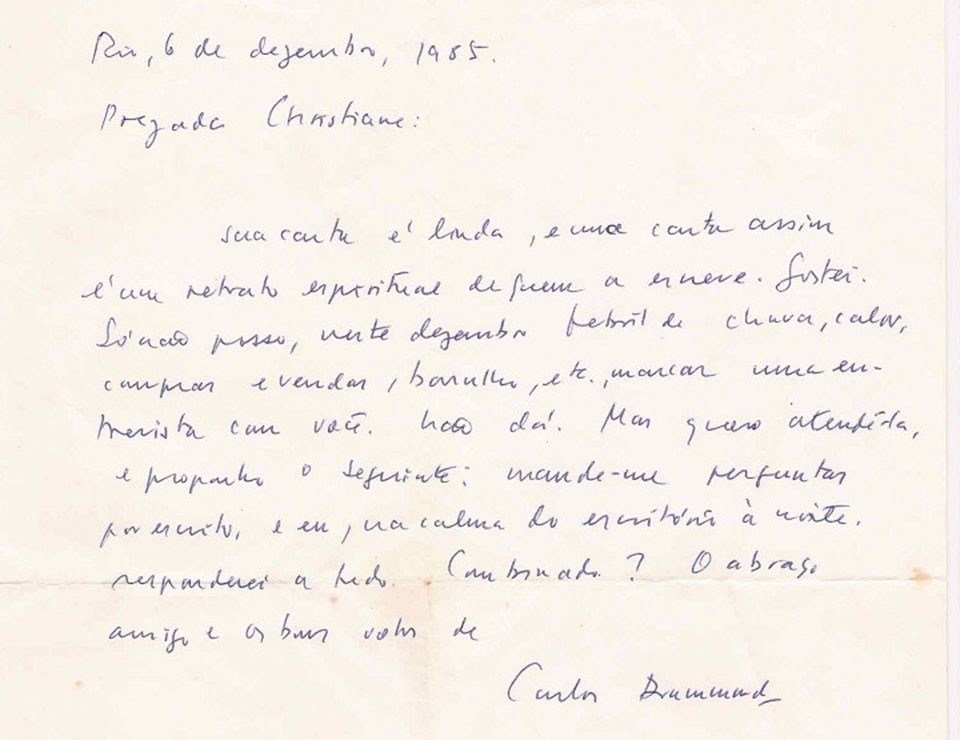 Rio, 6 de dezembro, 1985.
Prezada Christiane:
sua carta é linda, e uma carta assim
é um retrato espiritual de quem a escreve. Gostei.
Só não posso, neste dezembro febril de chuva, calor,
compras e vendas, barulho, etc., marcar uma en-
trevista com você. Não dá. Mas quero atendê-la,
e proponho o seguinte: mande-me perguntas
por escrito, e eu, na calma do escritório à noite,
responderei a tudo. Combinado? O abraço
amigo e os bons votos de
Carlos Drummond